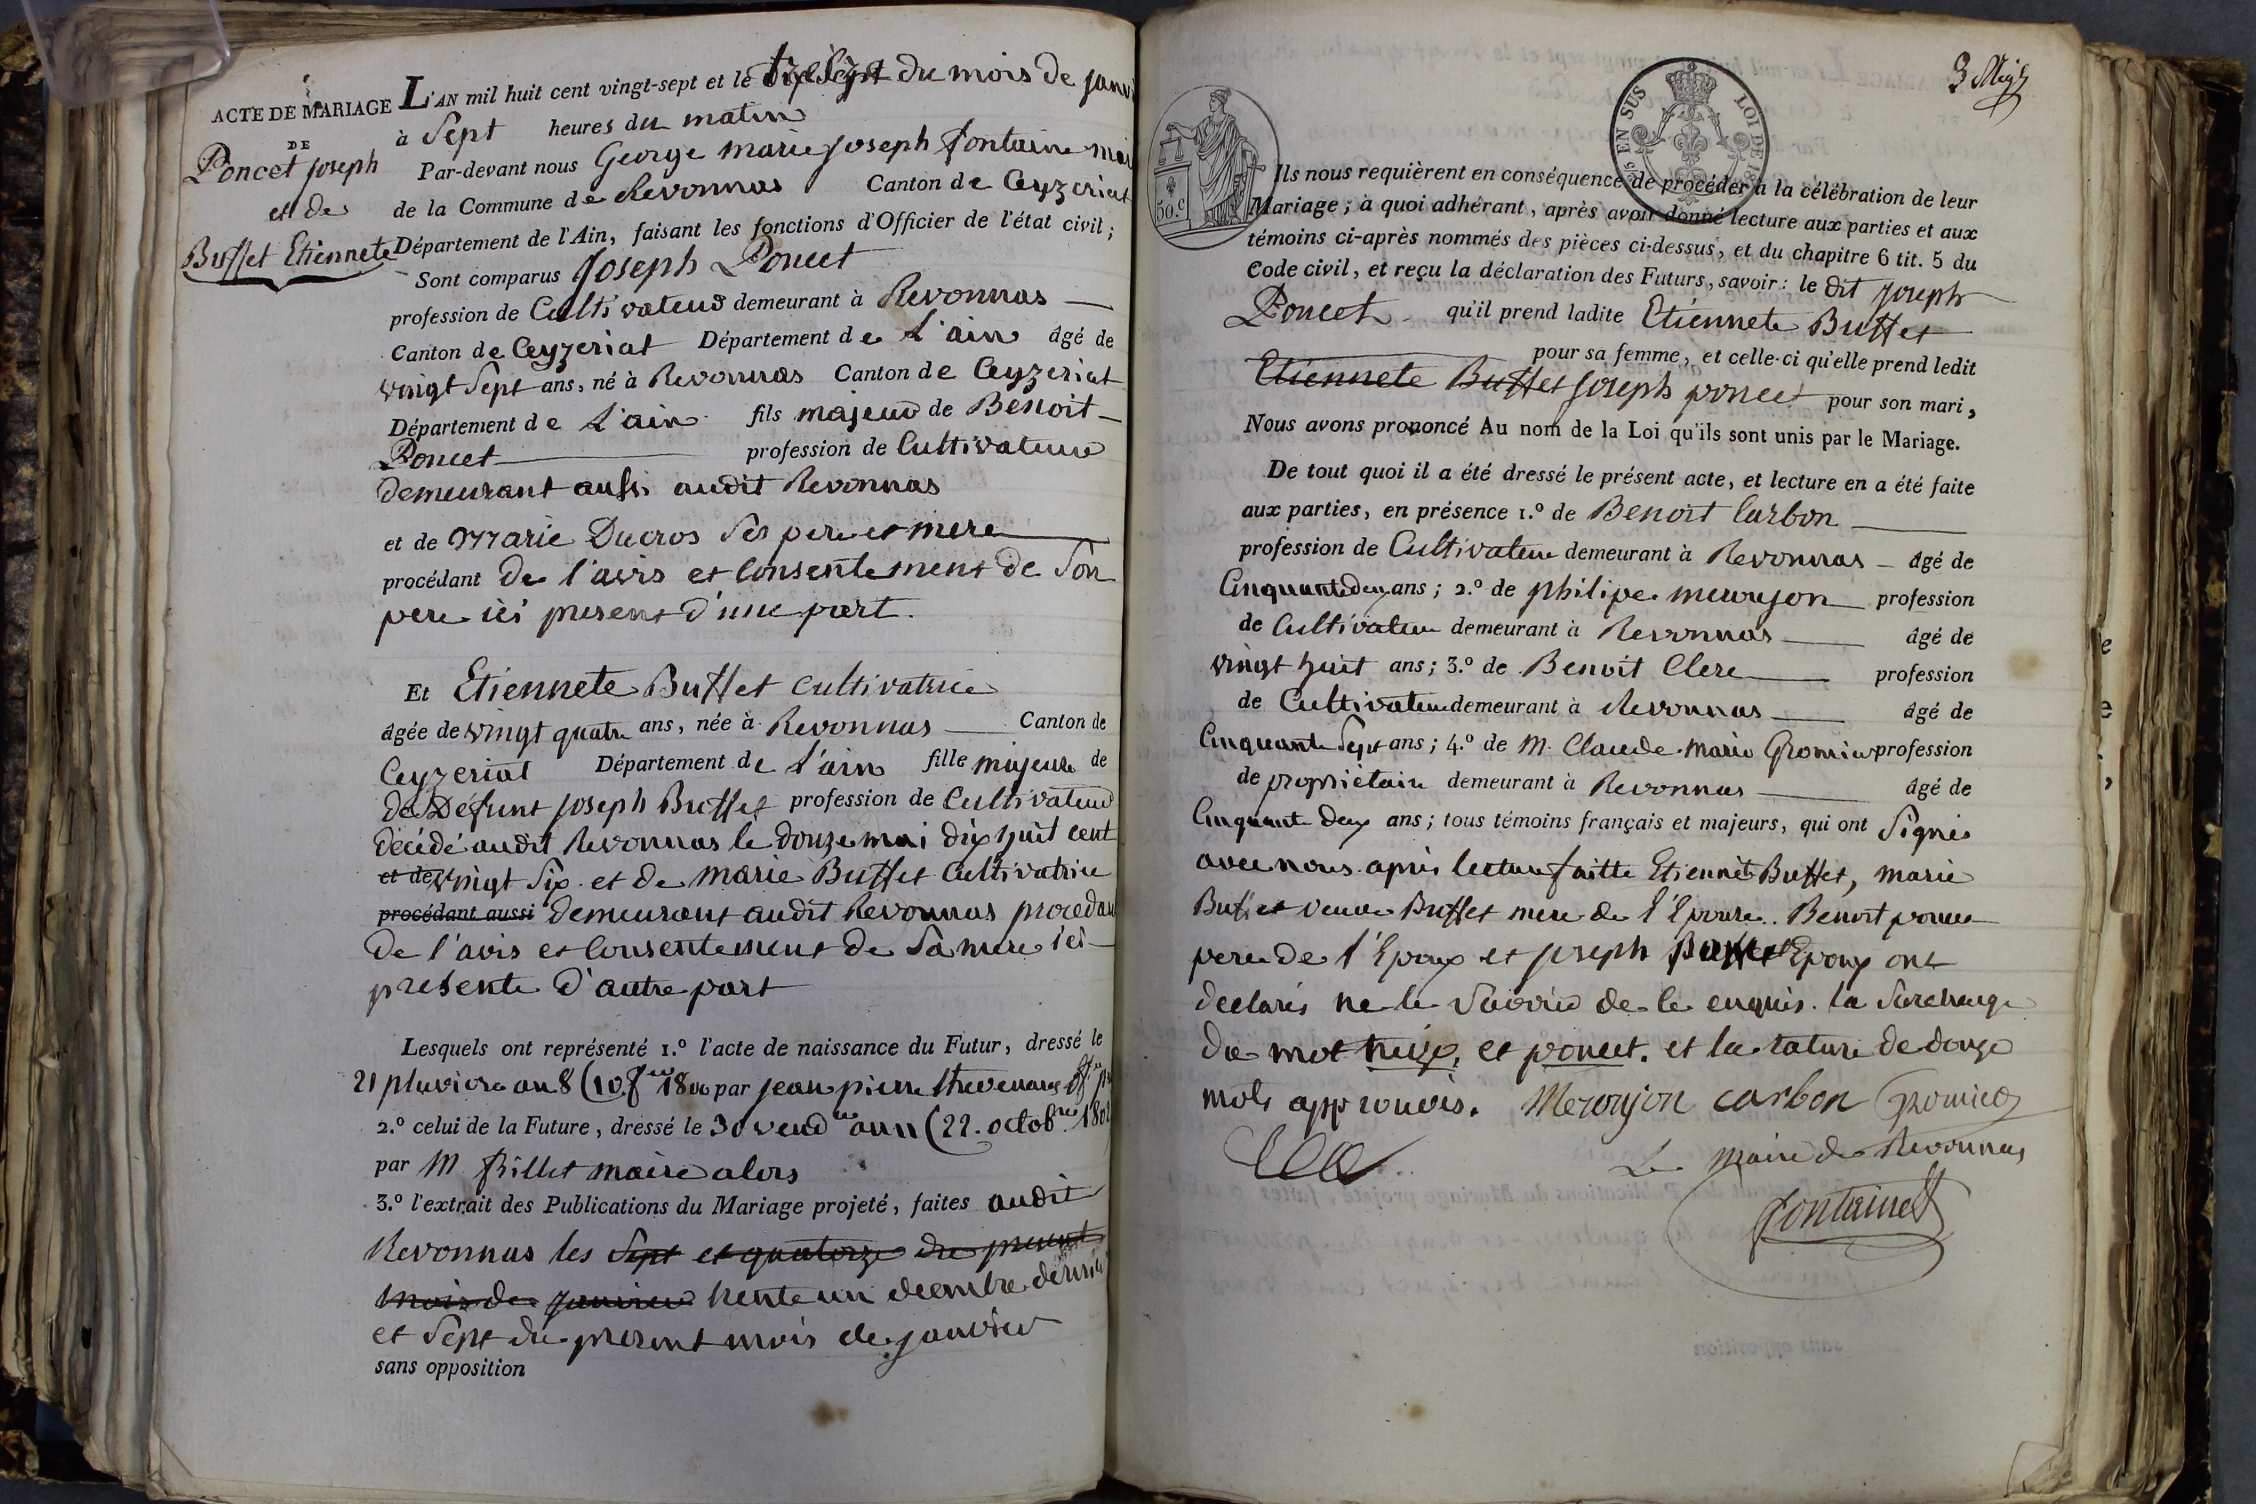 ACTE DE MARIAGE
DE
Poncet Joseph
et de
Buffet Etiennete
L'AN mil huit cent vingt-sept et le du mois de janvi
à Sept heures du matin
Par-devant nous George Marie Joseph fontaine mai
de la Commune de Revonnas Canton de Ceyzeriat
Département de l'Ain, faisant les fonctions d'Officier de l'état civil;
Sont comparus Joseph Poncet
profession de Cultivateur demeurant à Revonnas
Canton de Ceyzeriat Département de L'ain âgé de
vingt Sept ans, né à Revonnas Canton de Ceyzeriat
Département de L'ain fils majeur de Benoit
Poncet profession de Cultivateur
demeurant aussi audit Revonnas
et de Marie Ducros Ses pere et mere
procédant de l'avis et Consentement de Son
pere ici present d'une part.
Et Etiennete Buffet Cultivatrice
âgée de vingt quatre ans, née à Revonnas Canton de
Ceyzeriat Département de L'ain fille majeure de
de Défunt Joseph Buffet profession de Cultivateur
décédé audit Revonnas le douze mai dix huit cent
et de vingt Six et de marie Buffet Cultivatrice
procédant aussi demeurant audit Revonnas procedan
de l'avis et Consentement de Sa mere ici
presente d'autre part
Lesquels ont représenté 1.º l'acte de naissance du Futur, dressé le
21 pluviose an 8 (10 1800 par jean pierre
2.º celui de la Future, dressé le 30 vend.re an 11 (22. octob.re 180
par M Billet maire alors
3.º l'extrait des Publications du Mariage projeté, faites audit
Revonnas les Sept et quatorze du present
mois de janvier trente un decembre dernier
et Sept du present mois de janvier
sans opposition
EN SUS
LOI DE
50.c
Ils nous requièrent en conséquence de procéder à la célébration de leur
Mariage; à quoi adhérant, après avoir donné lecture aux parties et aux
témoins ci-après nommés des pièces ci-dessus, et du chapitre 6 tit. 5 du
Code civil, et reçu la déclaration des Futurs, savoir: le dit Joseph
Poncet qu'il prend ladite Etiennete Buffet
pour sa femme, et celle-ci qu'elle prend ledit
Etiennete Buffet Joseph poncet pour son mari,
Nous avons prononcé Au nom de la Loi qu'ils sont unis par le Mariage.
De tout quoi il a été dressé le présent acte, et lecture en a été faite
aux parties, en présence 1.º de Benoit Carbon
profession de Cultivateur demeurant à Revonnas âgé de
Cinquante deux ans; 2.º de philipe meuryon profession
de Cultivateur demeurant à Revonnas âgé de
vingt huit ans; 3.º de Benoit Clere profession
de Cultivateur demeurant à Revonnas âgé de
Cinquante Sept ans; 4.º de M. Claude Marie Gromier profession
de propriétaire demeurant à Revonnas âgé de
Cinquante deux ans; tous témoins français et majeurs, qui ont Signés
avec nous après lecture faitte Etiennete Buffet, marie
Buffet veuve Buffet mere de l'Epouse. Benoit poncet
pere de l'Epoux et joseph Epoux ont
declarés ne le Savoir de ce enquis. la Surcharge
du mot treize, et poncet. et la rature de douze
mots approuvés. Merouyon carbon Gromier
Le Maire de Revonnas
fontaine